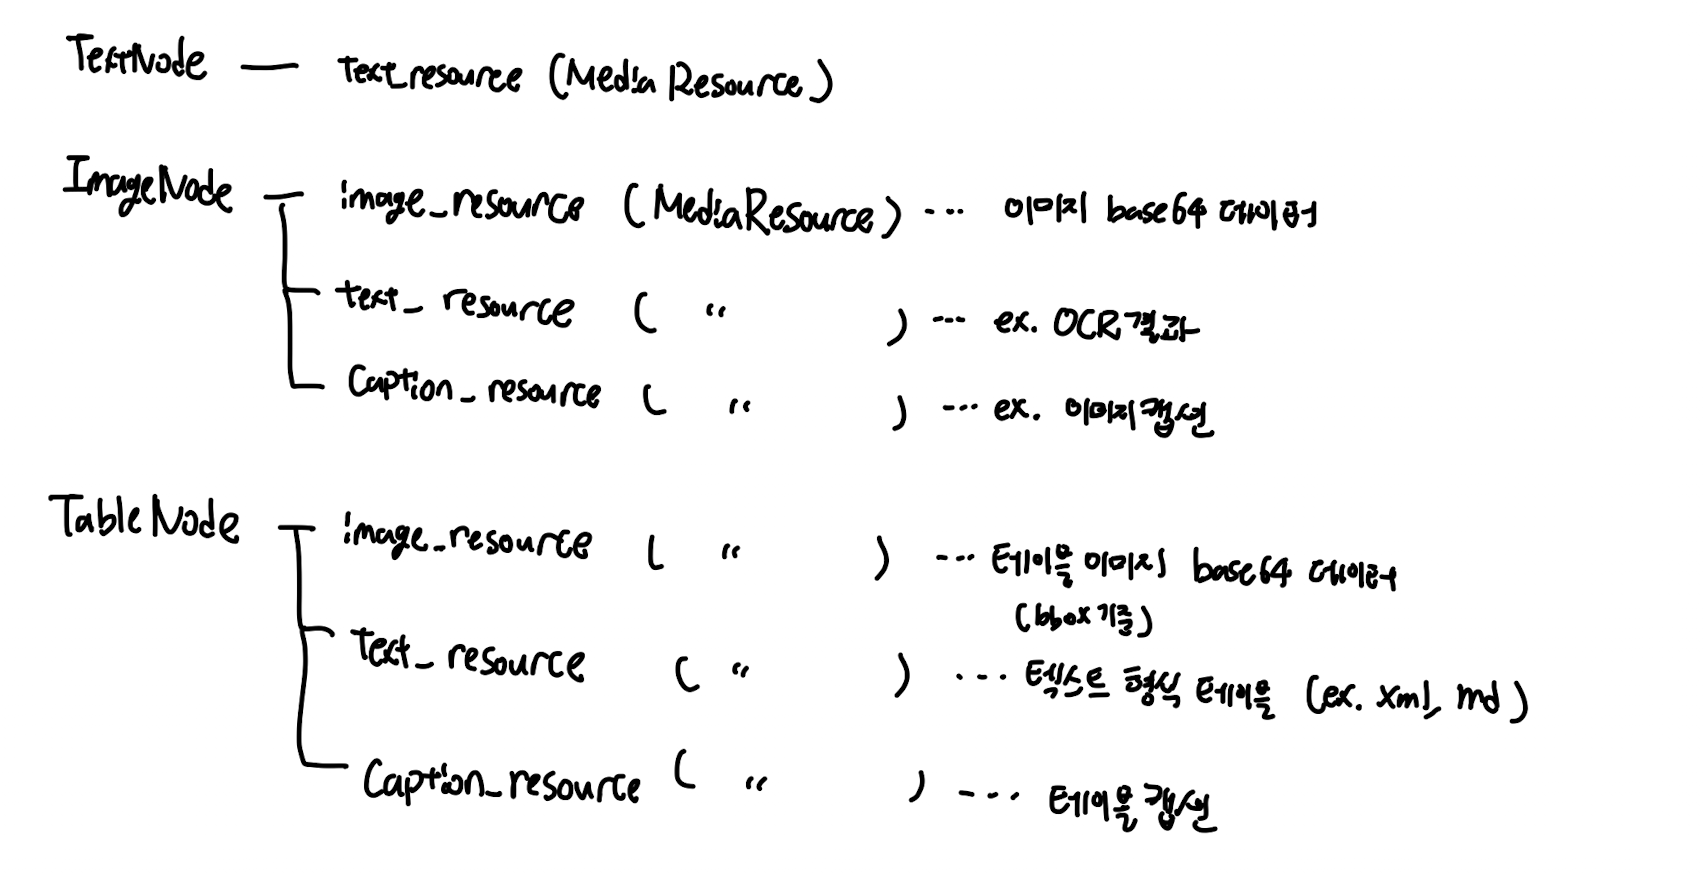 TextNode — Text_resource (MediaResource)
ImageNode — image_resource (MediaResource) ... 이미지 base64 데이터
text_resource ( " ) ... ex. OCR결과
Caption_resource ( " ) ... ex. 이미지캡션
TableNode — image_resource ( " ) ... 테이블 이미지 base64 데이터
(bbox 기준)
Text_resource ( " ) ... 텍스트 형식 테이블 (ex. xml, md)
Caption_resource ( " ) ... 테이블 캡션